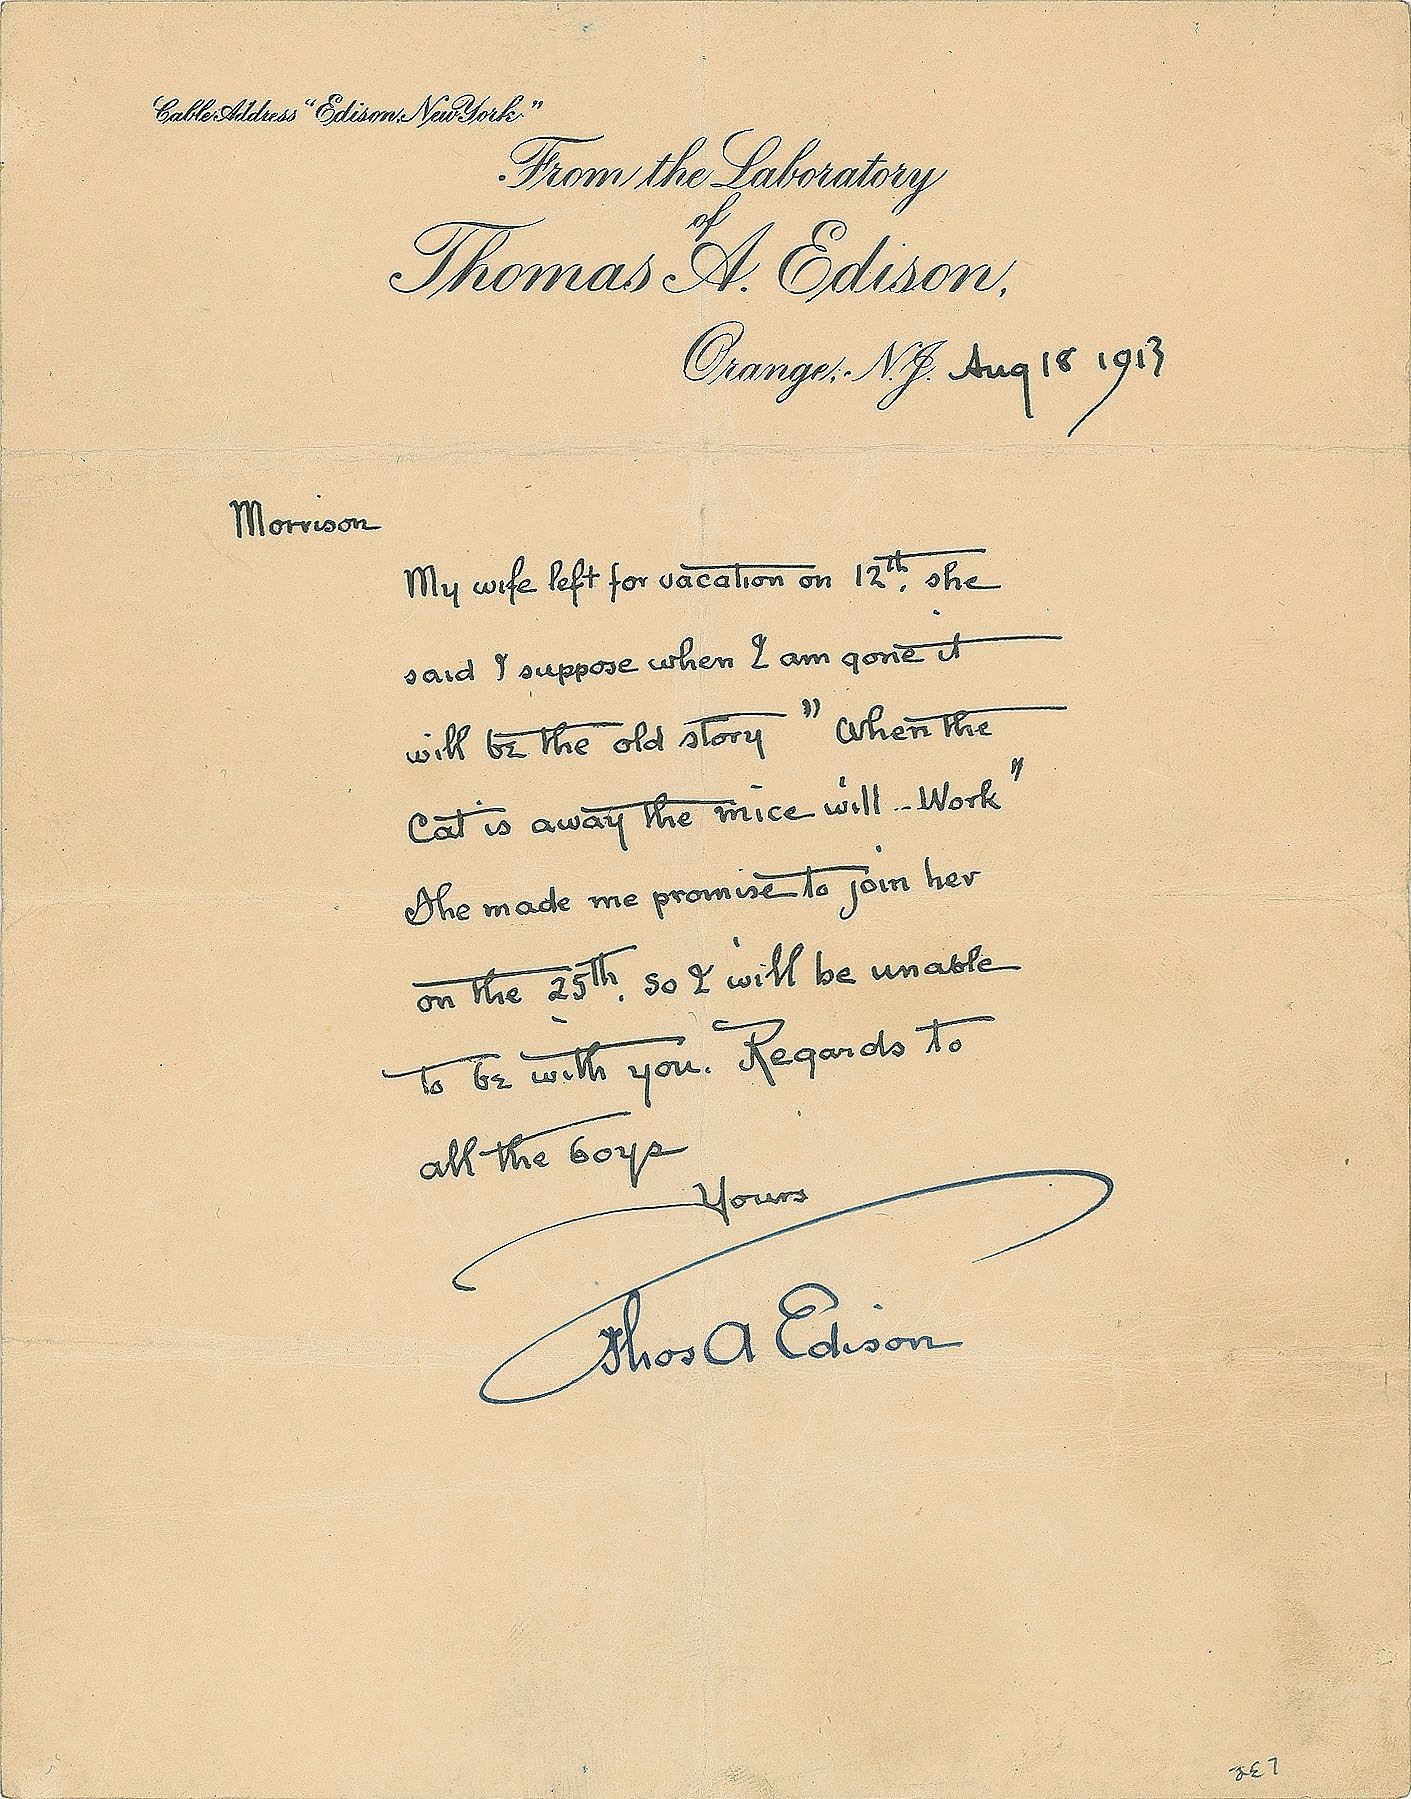 Cable Address "Edison, New York"
From the Laboratory
of
Thomas A. Edison,
Orange, N.J. Aug 18 1913
Morrison
My wife left for vacation on 12th, she
said I suppose when I am gone it
will be the old story " When the
Cat is away the mice will -- Work"
She made me promise to join her
on the 25th. so I will be unable
to be with you. Regards to
all the boys
Yours
Thos A Edison